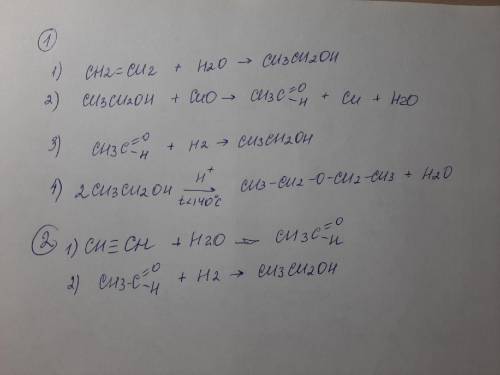 ①
1) CH2=CH2 + H2O → CH3CH2OH
2) CH3CH2OH + CuO → CH3C=O-H + Cu + H2O
3) CH3C=O-H + H2 → CH3CH2OH
4) 2CH3CH2OH H+ t<140°C → CH3-CH2-O-CH2-CH3 + H2O
② 1) CH≡CH + H2O → CH3C=O-H
2) CH3-C=O-H + H2 → CH3CH2OH